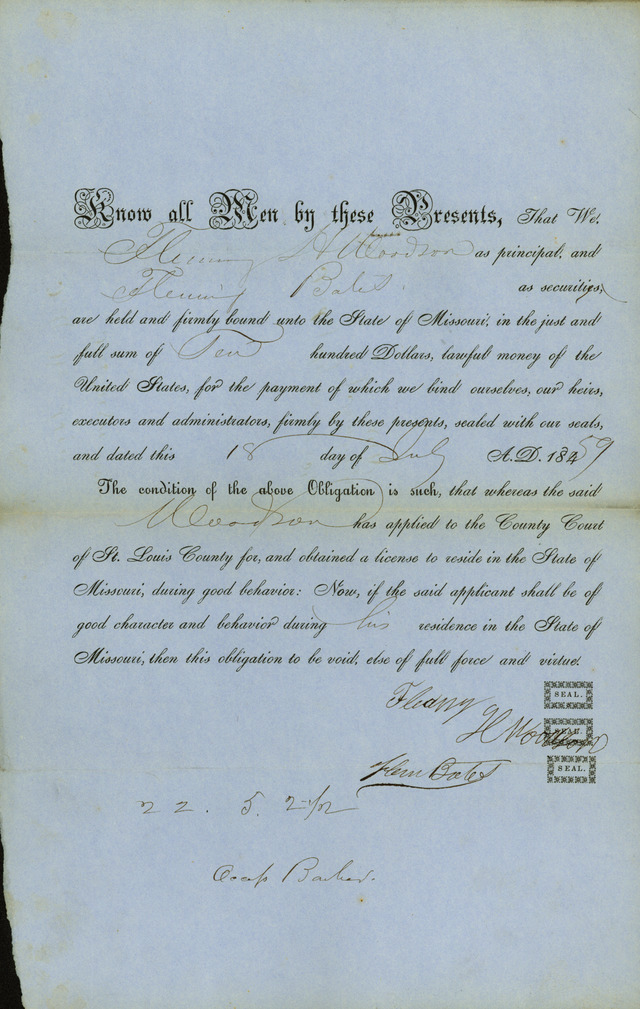 Know all Men by these Presents, That We,
Fleming H Woodson as principal, and
Fleming Bates as securities,
are held and firmly bound unto the State of Missouri, in the just and
full sum of Ten hundred Dollars, lawful money of the
United States, for the payment of which we bind ourselves, our heirs,
executors and administrators, firmly by these presents, sealed with our seals,
and dated this 18 day of July A.D. 1859
The condition of the above Obligation is such, that whereas the said
Woodson has applied to the County Court
of St. Louis County for, and obtained a license to reside in the State of
Missouri, during good behavior: Now, if the said applicant shall be of
good character and behavior during his residence in the State of
Missouri, then this obligation to be void, else of full force and virtue.
SEAL.
H Woodson SEAL.
Flem Bates SEAL.
22. 5. 2 1/2